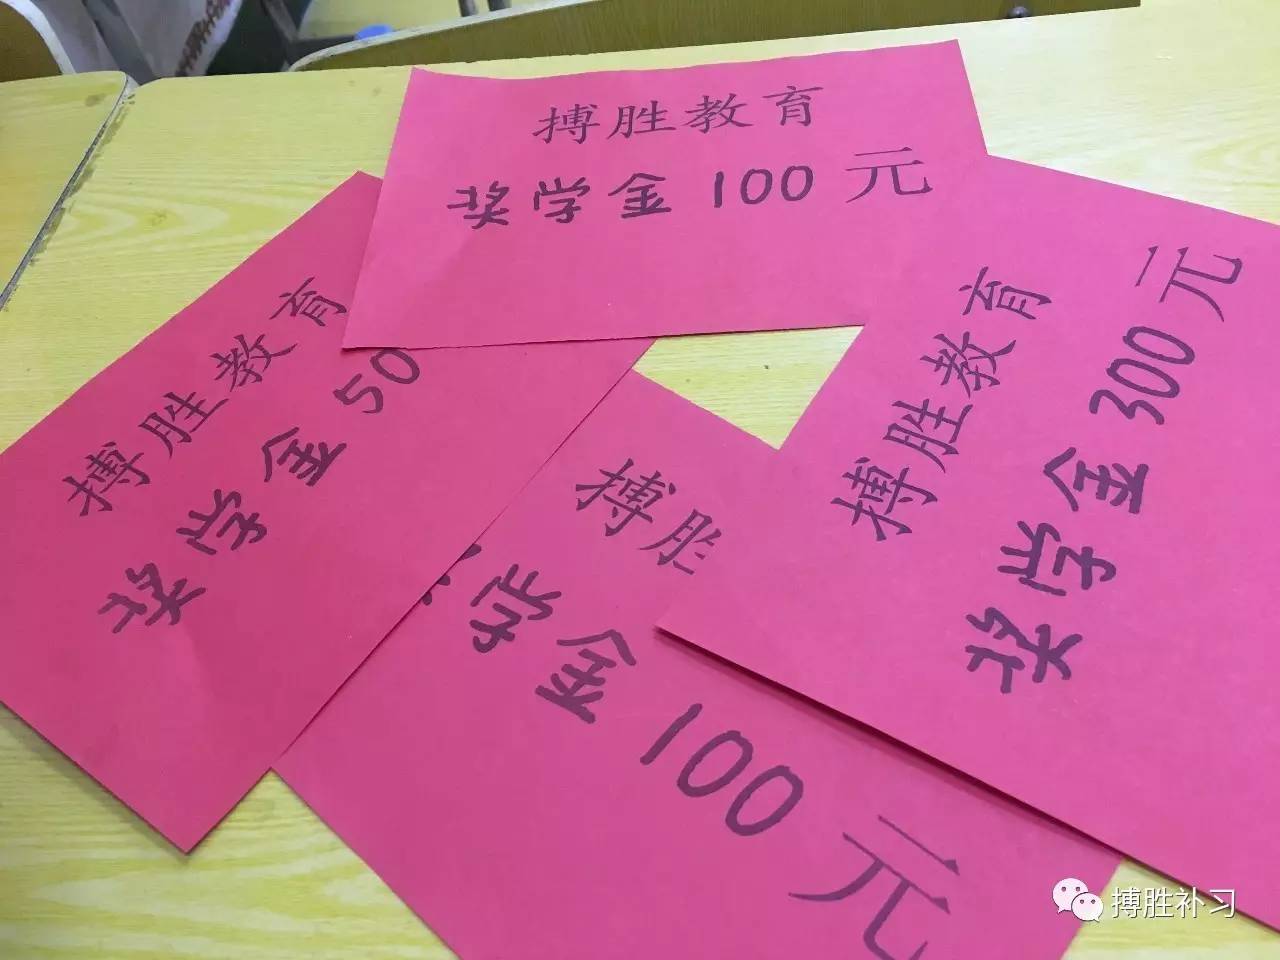 搏胜教育
奖学金 100 元
搏胜教育
奖学金 50
搏胜教育
奖学金 300 元
搏胜
学金 100 元
搏胜补习